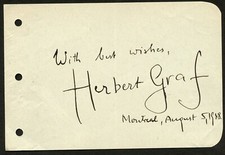 With best wishes,
Herbert Graf
Montreal, August 5, 1938